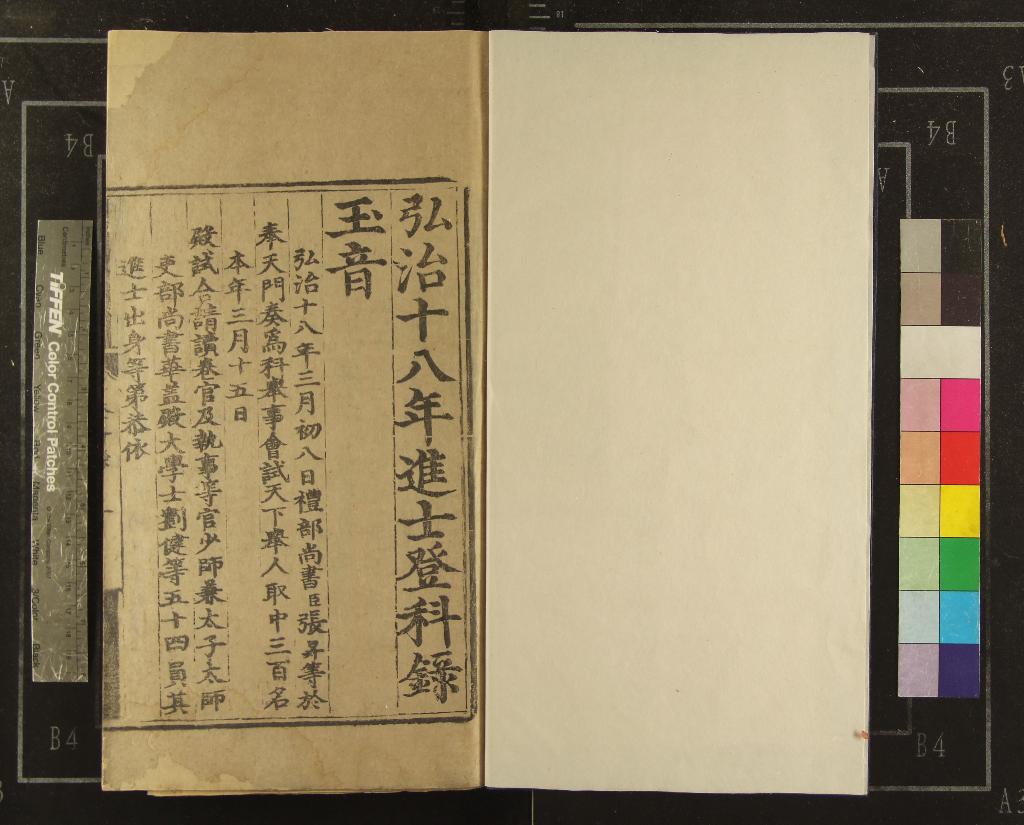 弘治十八年進士登科錄
玉音
弘治十八年三月初八日禮部尚書臣張昇等於
奉天門奏爲科舉事會試天下舉人取中三百名
本年三月十五日
殿試合請讀卷官及執事等官少師兼太子太師
吏部尚書華蓋殿大學士劉健等五十四員其
進士出身等第恭依
TIFFEN Color Control Patches
B4
B4
B4
B4
A3
A3
A
A